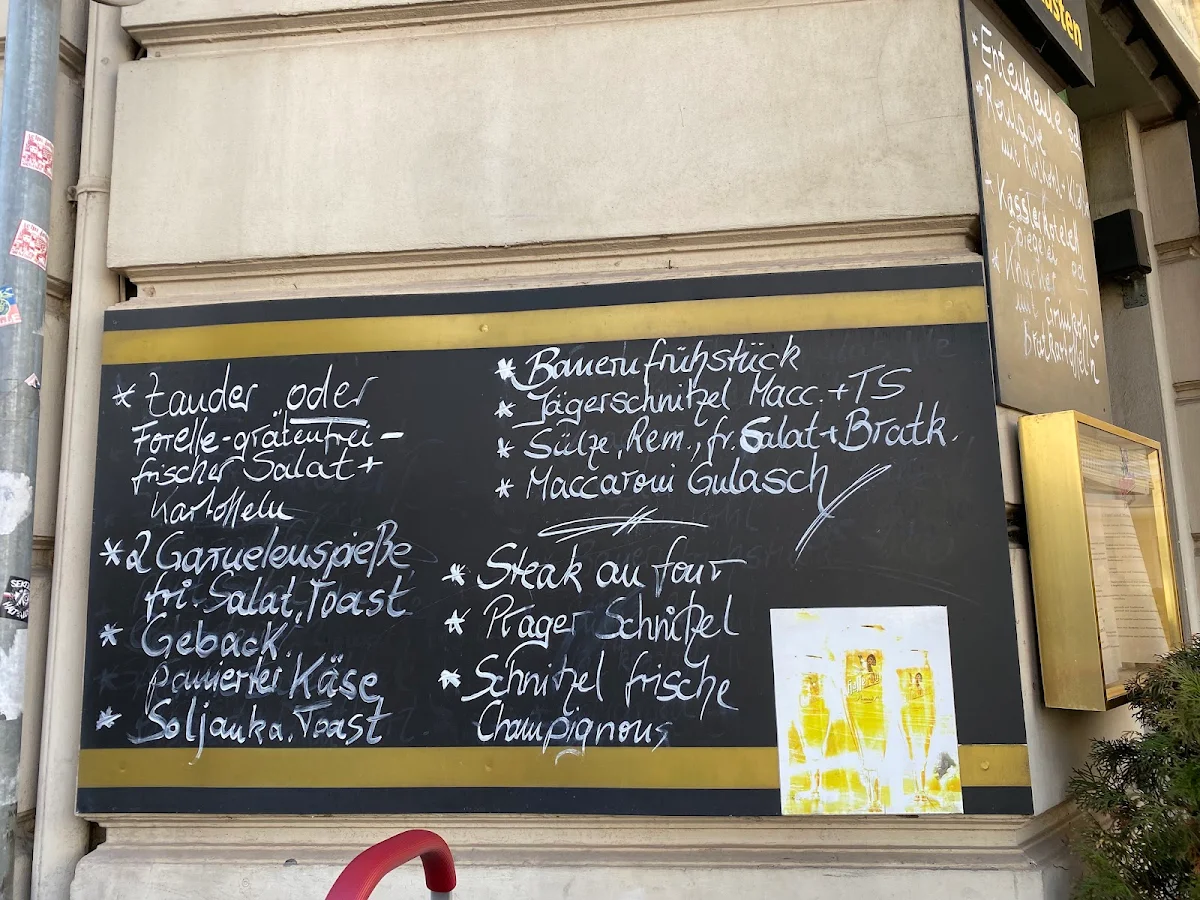 * Zander oder
Forelle-grätenfrei-
frischer Salat+
Kartoffeln
* 2 Garnelenspieße
fri. Salat, Toast
* Geback.
panierter Käse
* Soljanka, Toast
* Bauernfrühstück
* Jägerschnitzel Macc.+TS
* Sülze, Rem., fr. Salat+Bratk.
* Maccaroni Gulasch
* Steak au four
* Prager Schnitzel
* Schnitzel frische
Champignons
sten
* Entenkeule od
* Roulade
mit Rotkohl+Klöße
* Kasslerkotelett
Spiegelei od
* Knacker
mit Grünkohl+
Bratkartoffeln